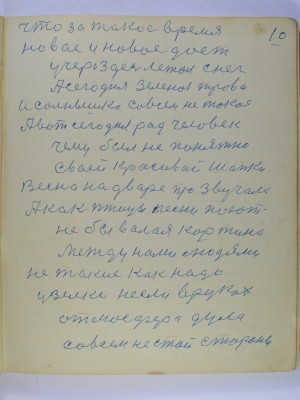 что за такое время
10
новое и новое дает
учера здесь летал снег
А сегодня зеленая трова
и солнышко совсем не такое
А вот сегодня рад человек
чему был не понятно
своей красивай шапки
Весна на дваре про звучала
А как птицы песни поют.
не бы валая картина
между нами людями
не такие как надо
цветки несли в руках
отмосфера дула
совсем не стой стороны